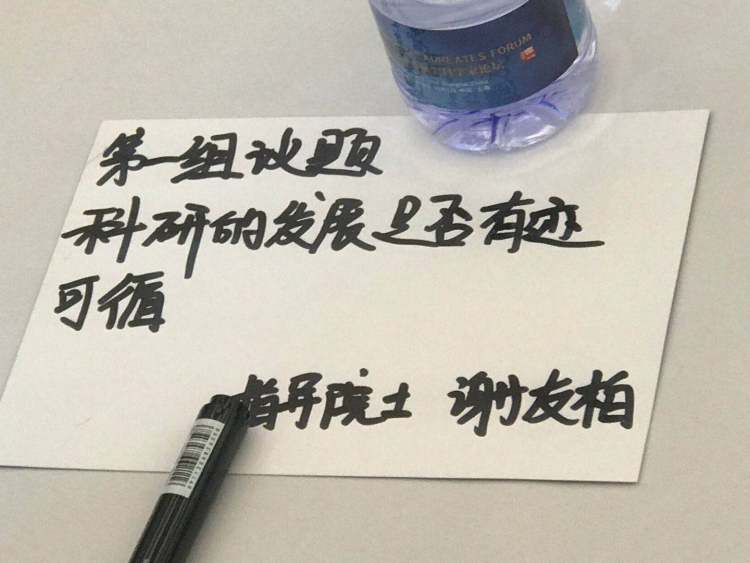 LAUREATES FORUM
第一组议题
科研的发展是否有迹
可循
指导院士 谢友柏